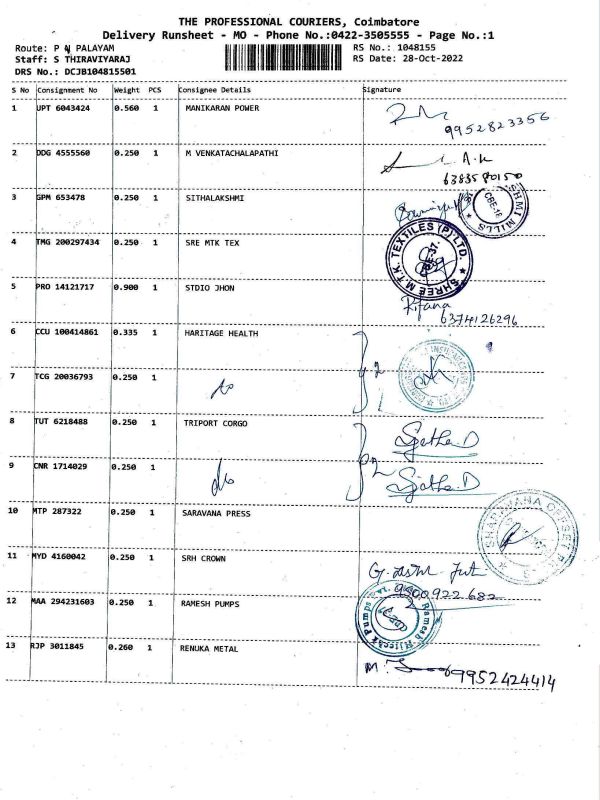 THE PROFESSIONAL COURIERS, Coimbatore
Delivery Runsheet - MO - Phone No.:0422-3505555 - Page No.:1
Route: P N PALAYAM RS No.: 1048155
Staff: S THIRAVIYARAJ RS Date: 28-Oct-2022
DRS No.: DCJB104815501
S No Consignment No Weight PCS Consignee Details Signature
1 UPT 6043424 0.560 1 MANIKARAN POWER
9952823356
2 DDG 4555560 0.250 1 M VENKATACHALAPATHI
6383580150
3 GPM 653478 0.250 1 SITHALAKSHMI
MILLS
4 TMG 200297434 0.250 1 SRE MTK TEX
SHREE M.T.K. TEXTILES (P) LTD.
5 PRO 14121717 0.900 1 STDIO JHON
Rifana
6374126296
6 CCU 100414861 0.335 1 HARITAGE HEALTH
7 TCG 20036793 0.250 1
2
8 TUT 6218488 0.250 1 TRIPORT CORGO
9 CNR 1714029 0.250 1
2
10 MTP 287322 0.250 1 SARAVANA PRESS
11 MYD 4160042 0.250 1 SRH CROWN
9500922682
12 MAA 294231603 0.250 1 RAMESH PUMPS
13 RJP 3011845 0.260 1 RENUKA METAL
9952424414